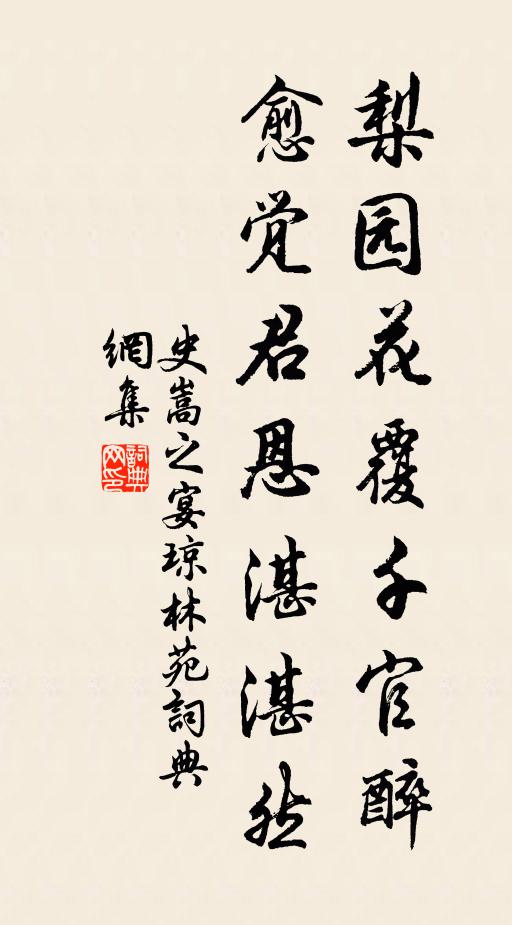 梨园花覆千官醉
愈觉君恩湛湛然
史嵩之宴琼林苑詞典
網集
詞典网印